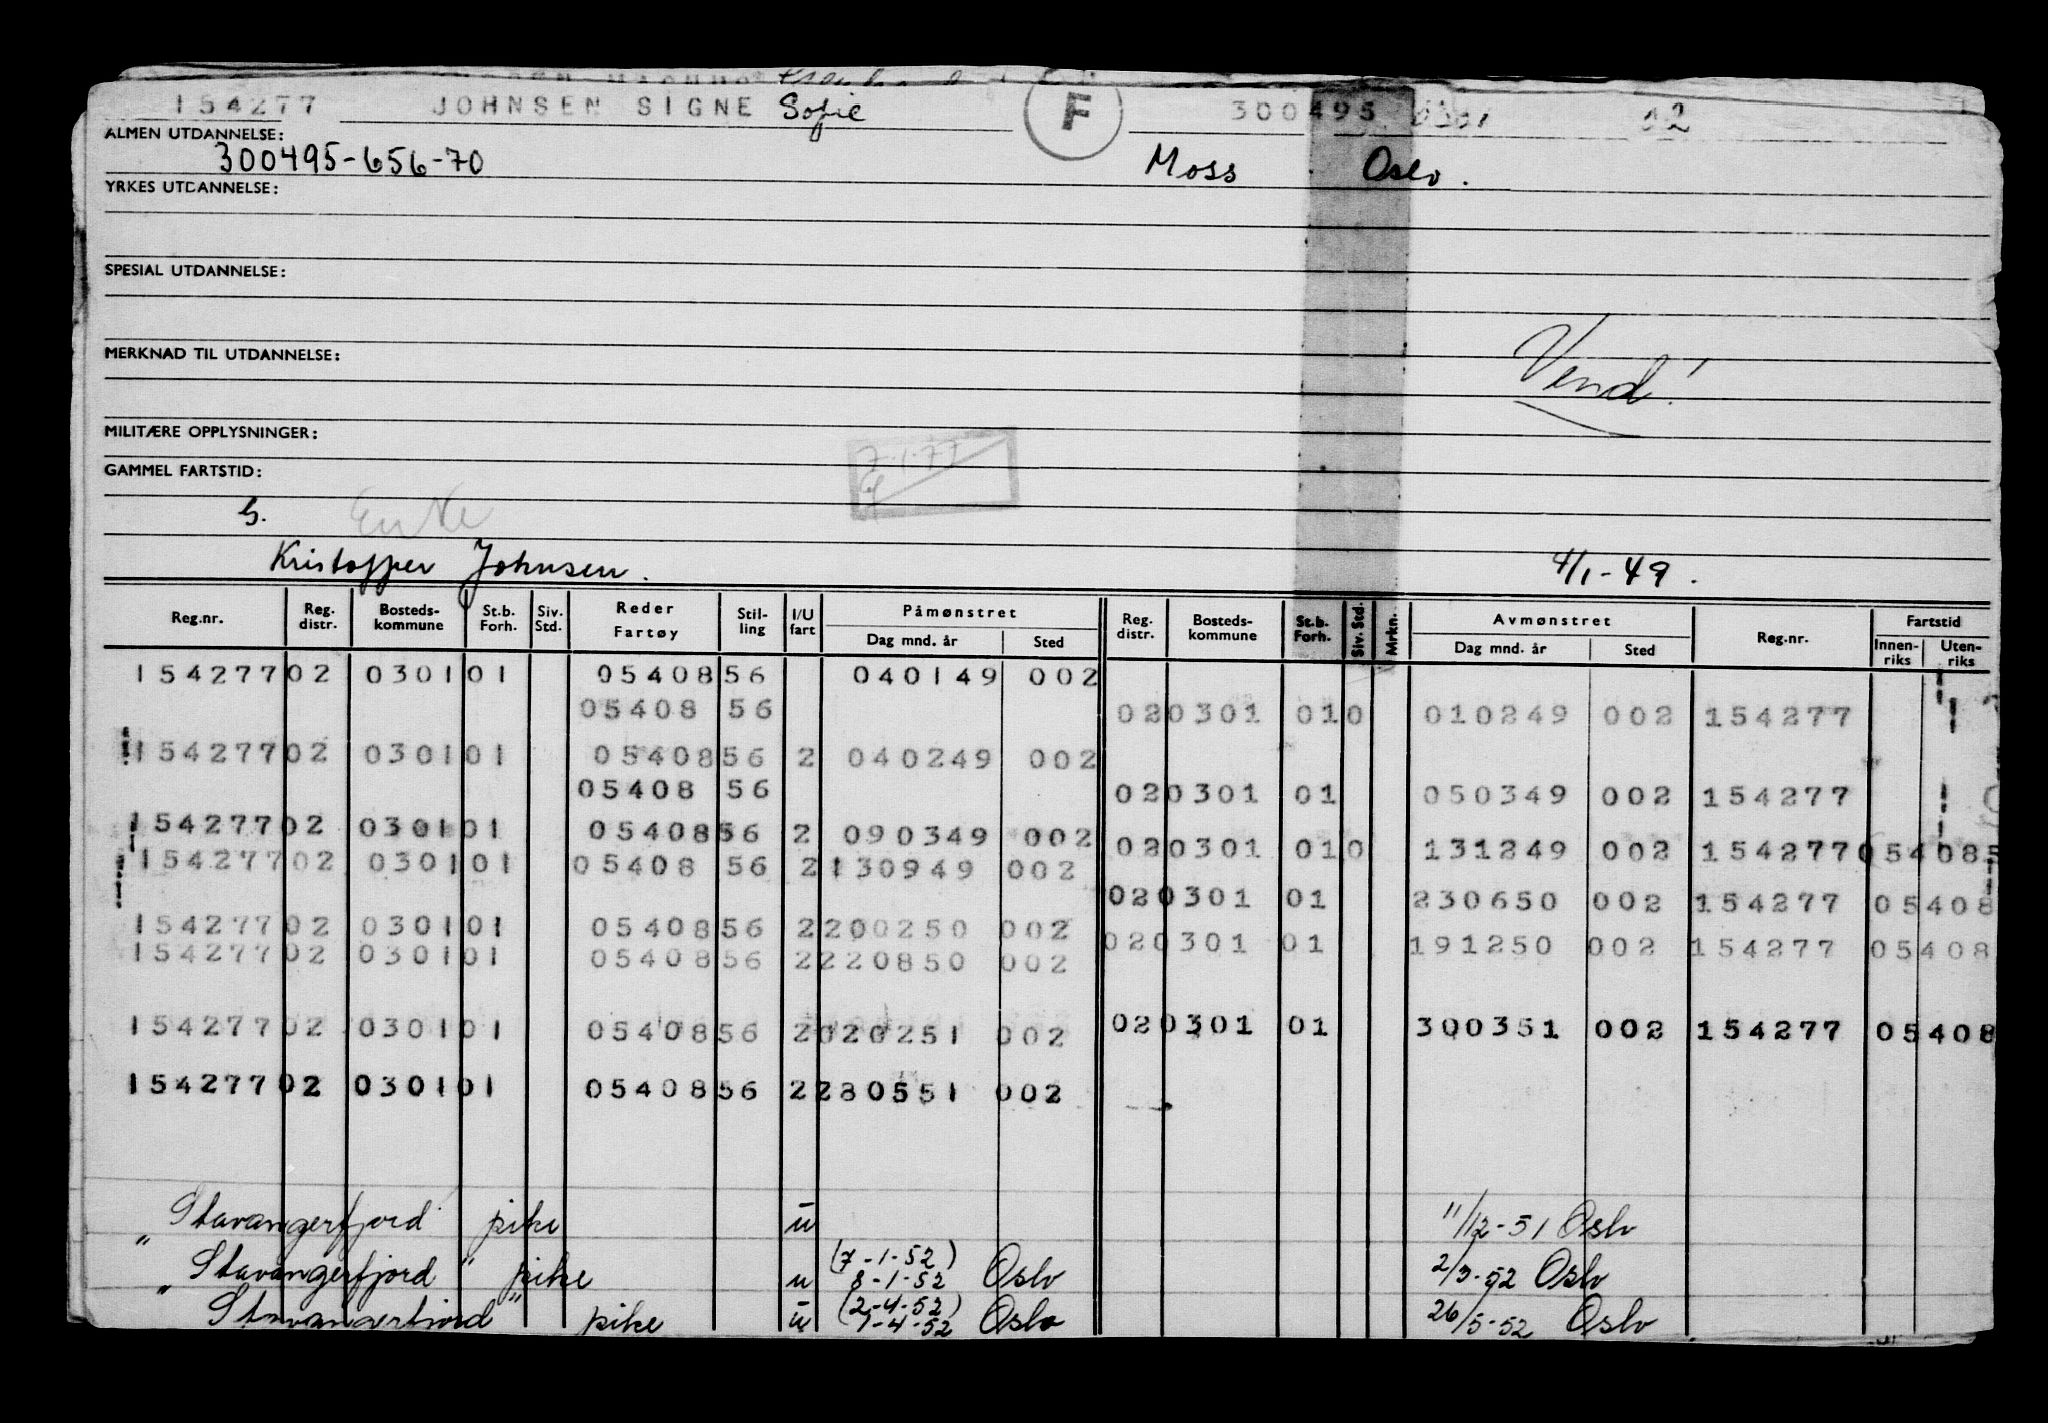 154277 JOHNSEN SIGNE Sofie F 300495 0301 02
ALMEN UTDANNELSE:
300495-656-70 Moss Oslo.
YRKES UTDANNELSE:
SPESIAL UTDANNELSE:
MERKNAD TIL UTDANNELSE:
Vend!
MILITÆRE OPPLYSNINGER:
7.1.77
GAMMEL FARTSTID:
G. Enke
Kristoffer Johnsen. 4/1-49.
Reg.nr. Reg. distr. Bosteds- kommune St.b. Forh. Siv. Std. Reder Fartøy Stil- ling I/U fart Påmønstret Dag mnd. år Sted Reg. distr. Bosteds- kommune St.b. Forh. Siv. Std. Mrkn. Avmønstret Dag mnd. år Sted Reg.nr. Fartstid Innen- riks Uten- riks
154277 02 0301 01 05408 56 040149 002
05408 56 02 0301 01 0 010249 002 154277
154277 02 0301 01 05408 56 2 040249 002
05408 56 02 0301 01 050349 002 154277
154277 02 0301 01 05408 56 2 090349 002
02 0301 01 0 131249 002 154277 05408
154277 02 0301 01 05408 56 2 130949 002
02 0301 01 230650 002 154277 05408
154277 02 0301 01 05408 56 2 200250 002
02 0301 01 191250 002 154277 05408
154277 02 0301 01 05408 56 2 220850 002
154277 02 0301 01 05408 56 2 020251 002 02 0301 01 300351 002 154277 05408
154277 02 0301 01 05408 56 2 280551 002
"Stavangerfjord" pike u 11/12-51 Oslo
"Stavangerfjord" pike u (7-1-52) 8-1-52 Oslo 2/3-52 Oslo
"Stavangerfjord" pike u (2-4-52) 7-4-52 Oslo 26/5-52 Oslo